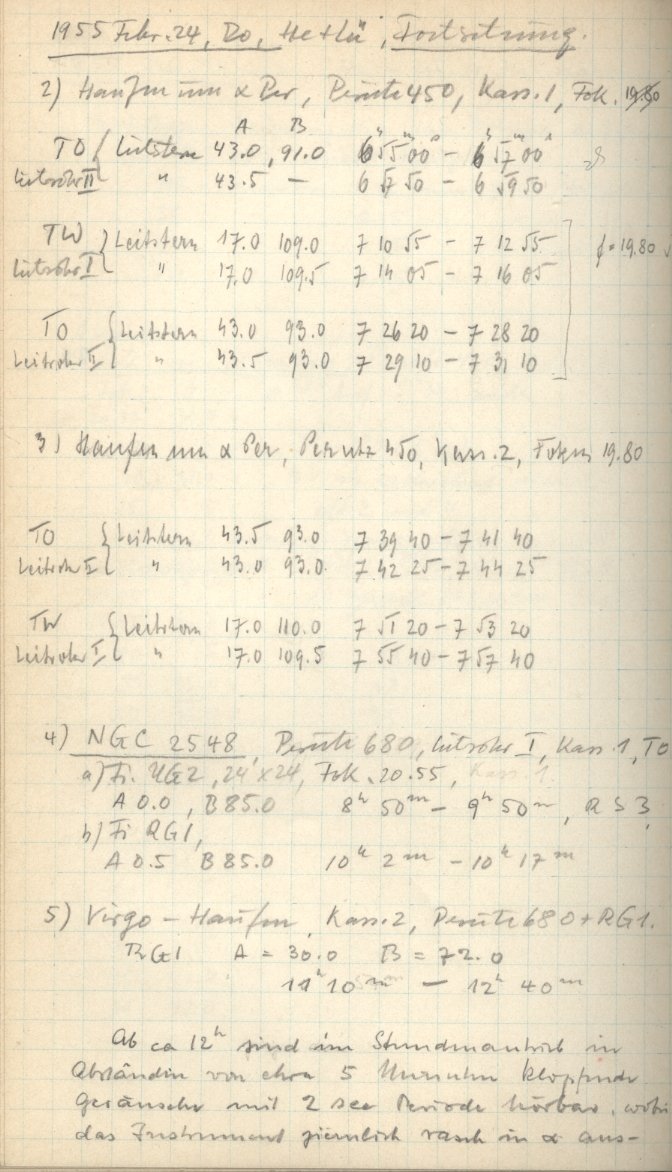 1955 Febr. 24, Do, He+Lü, Fortsetzung.
2) Haufen um α Per, Perutz 450, Kass. 1, Fok. 19.80
A B
TO { Leitstern 43.0, 91.0 6h 55m 00s – 6h 57m 00s
Leitrohr II " 43.5 – 6 57 50 – 6 59 50
TW } Leitstern 17.0 109.0 7 10 55 – 7 12 55 f = 19.80
Leitrohr I " 17.0 109.5 7 14 05 – 7 16 05
TO { Leitstern 43.0 93.0 7 26 20 – 7 28 20
Leitrohr II " 43.5 93.0 7 29 10 – 7 31 10
3) Haufen um α Per, Perutz 450, Kass. 2, Fokus 19.80
TO { Leitstern 43.5 93.0 7 39 40 – 7 41 40
Leitrohr II " 43.0 93.0 7 42 25 – 7 44 25
TW { Leitstern 17.0 110.0 7 51 20 – 7 53 20
Leitrohr I " 17.0 109.5 7 55 40 – 7 57 40
4) NGC 2548, Perutz 680, Leitrohr I, Kass. 1, TO
a) Fi. UG2, 24 x 24, Fok. 20.55, Kass 1
A 0.0, B 85.0 8h 50m – 9h 50m, R S 3
b) Fi RG1,
A 0.5 B 85.0 10h 2m – 10h 17m
5) Virgo – Haufen, Kass. 2, Perutz 680 + RG1.
RG1 A = 30.0 B = 72.0
11h 10m – 12h 40m
Ab ca 12h sind im Stundenantrieb in
Abständen von etwa 5 klopfende
Geräusche mit 2 sec Periode hörbar, wobei
das Instrument ziemlich rasch in α aus-